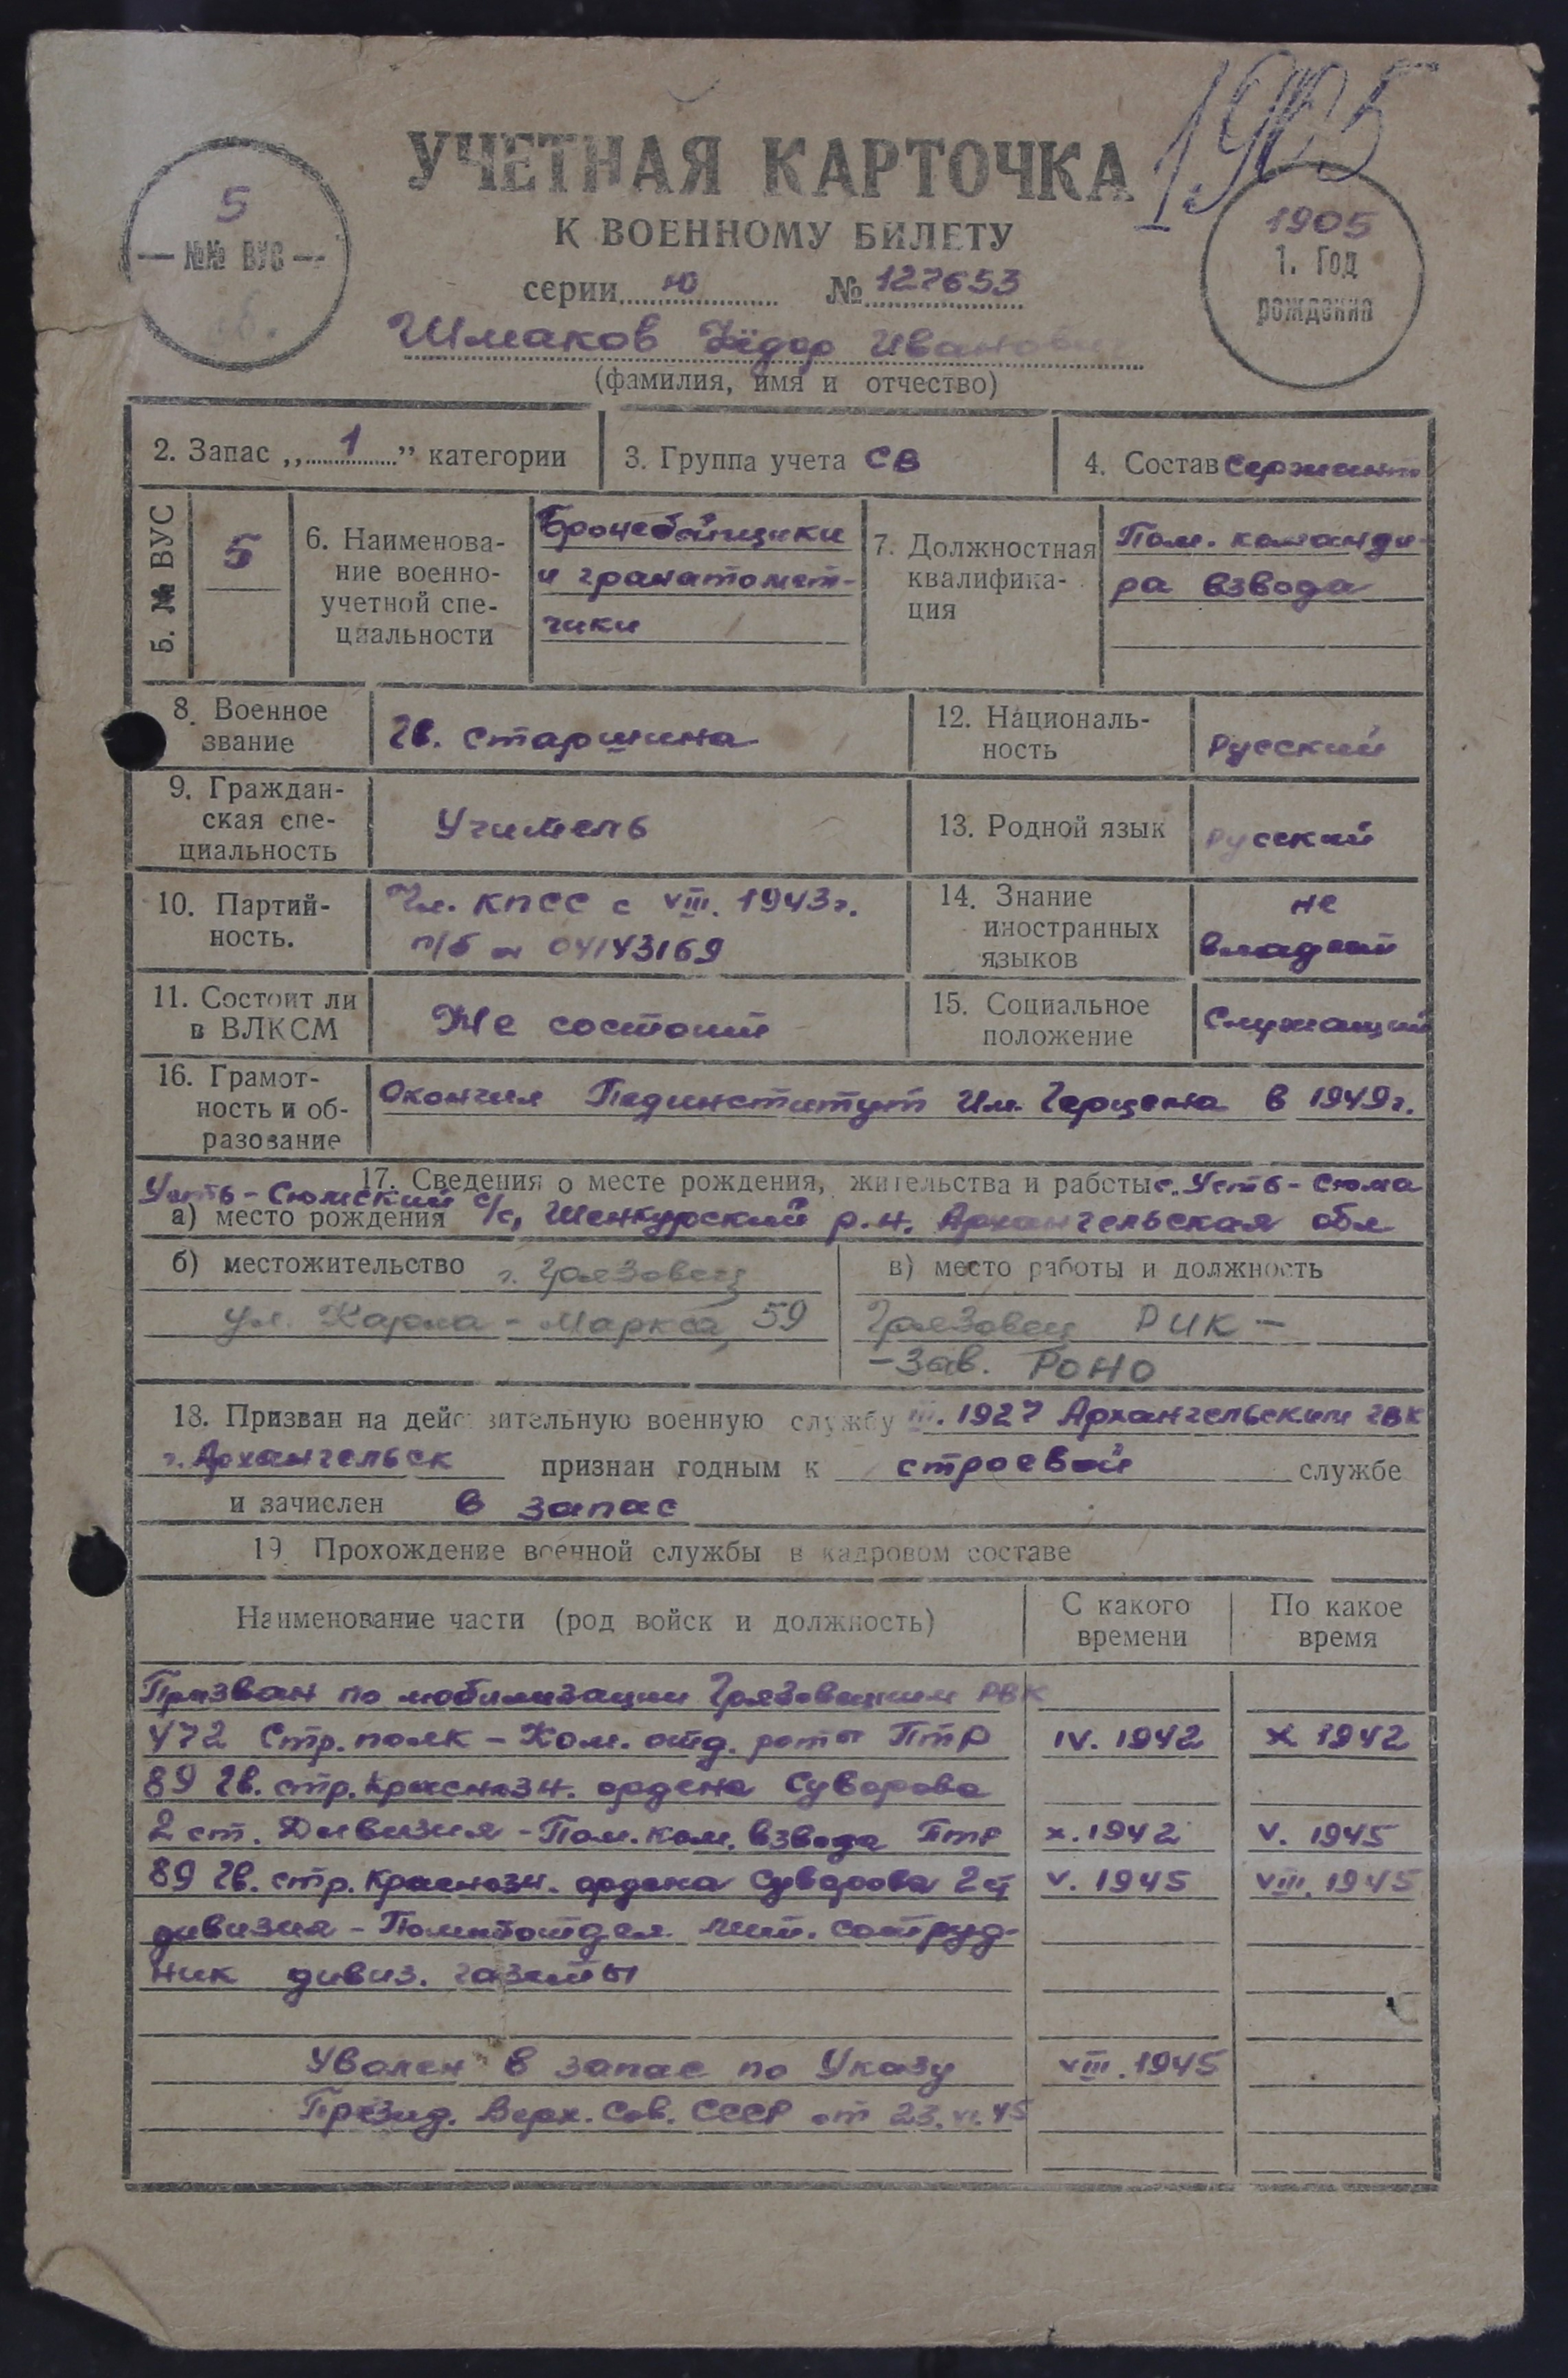 1905
УЧЕТНАЯ КАРТОЧКА
К ВОЕННОМУ БИЛЕТУ
5
— №№ ВУС —
1905
1. Год
рождения
серии Ю № 127653
Шмаков Фёдор Иванови
(фамилия, имя и отчество)
2. Запас „ 1 ” категории
3. Группа учета СВ
4. Состав Сержант
5. № ВУС
5
6. Наименова-
ние военно-
учетной спе-
циальности
Бронебойщики
и гранатомет-
чики
7. Должностная
квалифика-
ция
Пом. команди-
ра взвода
8. Военное
звание
Гв. старшина
12. Националь-
ность
Русский
9. Граждан-
ская спе-
циальность
Учитель
13. Родной язык
Русский
10. Партий-
ность.
Чл. КПСС с VIII. 1943г.
п/б н 04143169
14. Знание
иностранных
языков
не
владеет
11. Состоит ли
в ВЛКСМ
Не состоит
15. Социальное
положение
Служащий
16. Грамот-
ность и об-
разование
Окончил Пединститут Им. Герцена в 1949г.
17. Сведения о месте рождения, жительства и работы с. Усть-Сюма
Усть-Сюмский с/с, Шенкурский р.н. Архангельская обл
а) место рождения
б) местожительство г. Грязовец
ул. Карла-Маркса, 59
в) место работы и должность
Грязовец РИК –
– Зав. РОНО
18. Призван на действительную военную службу III. 1927 Архангельским ГВК
г. Архангельск признан годным к строевой службе
и зачислен в запас
19. Прохождение военной службы в кадровом составе
Наименование части (род войск и должность)
С какого
времени
По какое
время
Призван по мобилизации Грязовецким РВК
472 Стр. полк – Ком. отд. роты ПТР IV. 1942 X 1942
89 гв. стр. Краснозн. ордена Суворова
2 ст. Дивизия – Пом. ком. взвода ПТР X. 1942 V. 1945
89 гв. стр. Краснозн. ордена Суворова 2 ст V. 1945 VIII. 1945
дивизия – Политотдел лит. сотруд-
ник дивиз. газеты
Уволен в запас по Указу VIII. 1945
Презид. Верх. Сов. СССР от 23. VI. 45